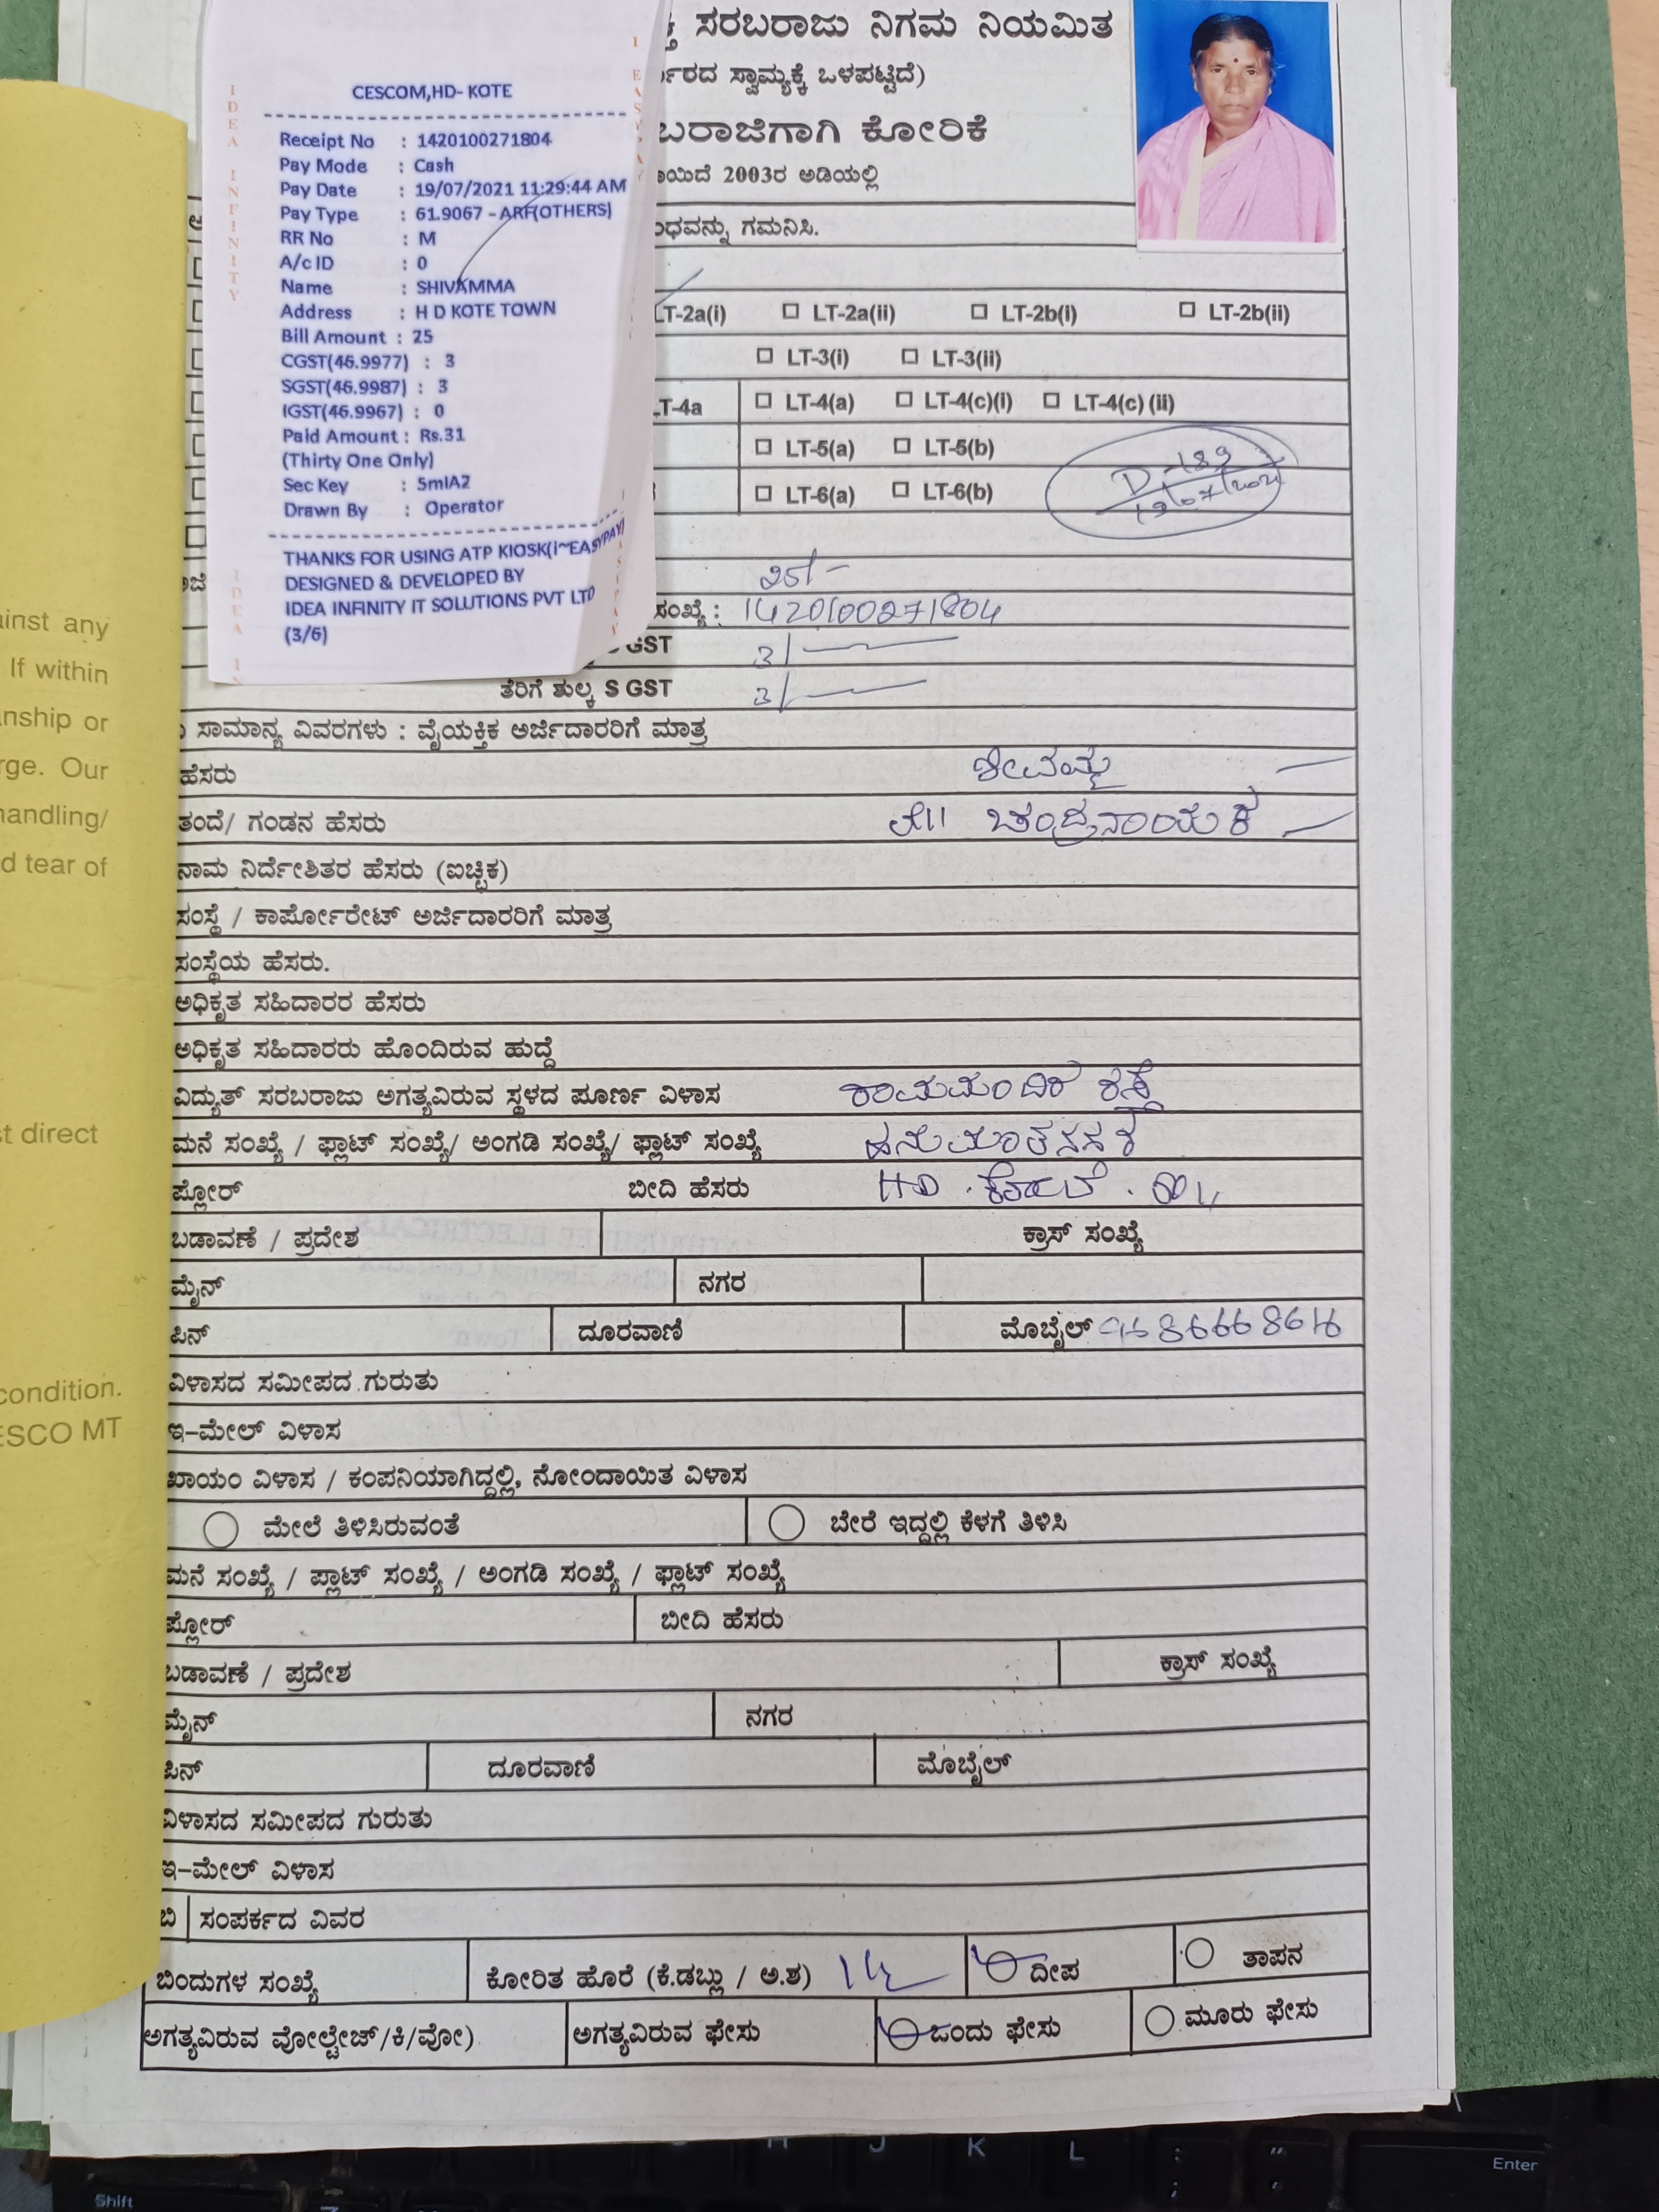 CESCOM,HD- KOTE
Receipt No : 1420100271804
Pay Mode : Cash
Pay Date : 19/07/2021 11:29:44 AM
Pay Type : 61.9067 - ARF(OTHERS)
RR No : M
A/c ID : 0
Name : SHIVAMMA
Address : H D KOTE TOWN
Bill Amount : 25
CGST(46.9977) : 3
SGST(46.9987) : 3
IGST(46.9967) : 0
Paid Amount : Rs.31
(Thirty One Only)
Sec Key : 5mIA2
Drawn By : Operator
THANKS FOR USING ATP KIOSK(i~EASYPAY)
DESIGNED & DEVELOPED BY
IDEA INFINITY IT SOLUTIONS PVT LTD
(3/6)
IDEA INFINITY
I EASYPAY
IDEA IN
ಸರಬರಾಜು ನಿಗಮ ನಿಯಮಿತ
ಸ್ವಾಮ್ಯಕ್ಕೆ ಒಳಪಟ್ಟಿದೆ)
ಬರಾಜಿಗಾಗಿ ಕೋರಿಕೆ
ಯಿದೆ 2003ರ ಅಡಿಯಲ್ಲಿ
ಧವನ್ನು ಗಮನಿಸಿ.
LT-2a(i) LT-2a(ii) LT-2b(i) LT-2b(ii)
LT-3(i) LT-3(ii)
LT-4a LT-4(a) LT-4(c)(i) LT-4(c) (ii)
LT-5(a) LT-5(b)
LT-6(a) LT-6(b)
D-189
19/07/2021
25/-
ಸಂಖ್ಯೆ : 1420100271804
GST 3/
ತೆರಿಗೆ ಶುಲ್ಕ S GST 3/
ಸಾಮಾನ್ಯ ವಿವರಗಳು : ವೈಯಕ್ತಿಕ ಅರ್ಜಿದಾರರಿಗೆ ಮಾತ್ರ
ಹೆಸರು ಶಿವಮ್ಮ
ತಂದೆ/ ಗಂಡನ ಹೆಸರು ಚಂದ್ರನಾಯಕ
ನಾಮ ನಿರ್ದೇಶಿತರ ಹೆಸರು (ಐಚ್ಛಿಕ)
ಸಂಸ್ಥೆ / ಕಾರ್ಪೋರೇಟ್ ಅರ್ಜಿದಾರರಿಗೆ ಮಾತ್ರ
ಸಂಸ್ಥೆಯ ಹೆಸರು.
ಅಧಿಕೃತ ಸಹಿದಾರರ ಹೆಸರು
ಅಧಿಕೃತ ಸಹಿದಾರರು ಹೊಂದಿರುವ ಹುದ್ದೆ
ವಿದ್ಯುತ್ ಸರಬರಾಜು ಅಗತ್ಯವಿರುವ ಸ್ಥಳದ ಪೂರ್ಣ ವಿಳಾಸ ರಾಮಮಂದಿರ ರಸ್ತೆ
ಮನೆ ಸಂಖ್ಯೆ / ಫ್ಲಾಟ್ ಸಂಖ್ಯೆ/ ಅಂಗಡಿ ಸಂಖ್ಯೆ/ ಫ್ಲಾಟ್ ಸಂಖ್ಯೆ ಹನುಮಂತನಗರ
ಪ್ಲೋರ್ ಬೀದಿ ಹೆಸರು HD. ಕೋಟೆ.
ಬಡಾವಣೆ / ಪ್ರದೇಶ ಕ್ರಾಸ್ ಸಂಖ್ಯೆ
ಮೈನ್ ನಗರ
ಪಿನ್ ದೂರವಾಣಿ ಮೊಬೈಲ್
ವಿಳಾಸದ ಸಮೀಪದ ಗುರುತು
ಇ-ಮೇಲ್ ವಿಳಾಸ
ಖಾಯಂ ವಿಳಾಸ / ಕಂಪನಿಯಾಗಿದ್ದಲ್ಲಿ, ನೋಂದಾಯಿತ ವಿಳಾಸ
ಮೇಲೆ ತಿಳಿಸಿರುವಂತೆ ಬೇರೆ ಇದ್ದಲ್ಲಿ ಕೆಳಗೆ ತಿಳಿಸಿ
ಮನೆ ಸಂಖ್ಯೆ / ಪ್ಲಾಟ್ ಸಂಖ್ಯೆ / ಅಂಗಡಿ ಸಂಖ್ಯೆ / ಫ್ಲಾಟ್ ಸಂಖ್ಯೆ
ಪ್ಲೋರ್ ಬೀದಿ ಹೆಸರು
ಬಡಾವಣೆ / ಪ್ರದೇಶ ಕ್ರಾಸ್ ಸಂಖ್ಯೆ
ಮೈನ್ ನಗರ
ಪಿನ್ ದೂರವಾಣಿ ಮೊಬೈಲ್
ವಿಳಾಸದ ಸಮೀಪದ ಗುರುತು
ಇ-ಮೇಲ್ ವಿಳಾಸ
ಬಿ ಸಂಪರ್ಕದ ವಿವರ
ಬಿಂದುಗಳ ಸಂಖ್ಯೆ ಕೋರಿತ ಹೊರೆ (ಕೆ.ಡಬ್ಲು / ಅ.ಶ) ದೀಪ ತಾಪನ
ಅಗತ್ಯವಿರುವ ವೋಲ್ಟೇಜ್/ಕಿ/ವೋ) ಅಗತ್ಯವಿರುವ ಫೇಸು ಒಂದು ಫೇಸು ಮೂರು ಫೇಸು
inst any
If within
nship or
rge. Our
handling/
d tear of
t direct
condition.
ESCO MT
H J K L : ; " '
Enter
Shift